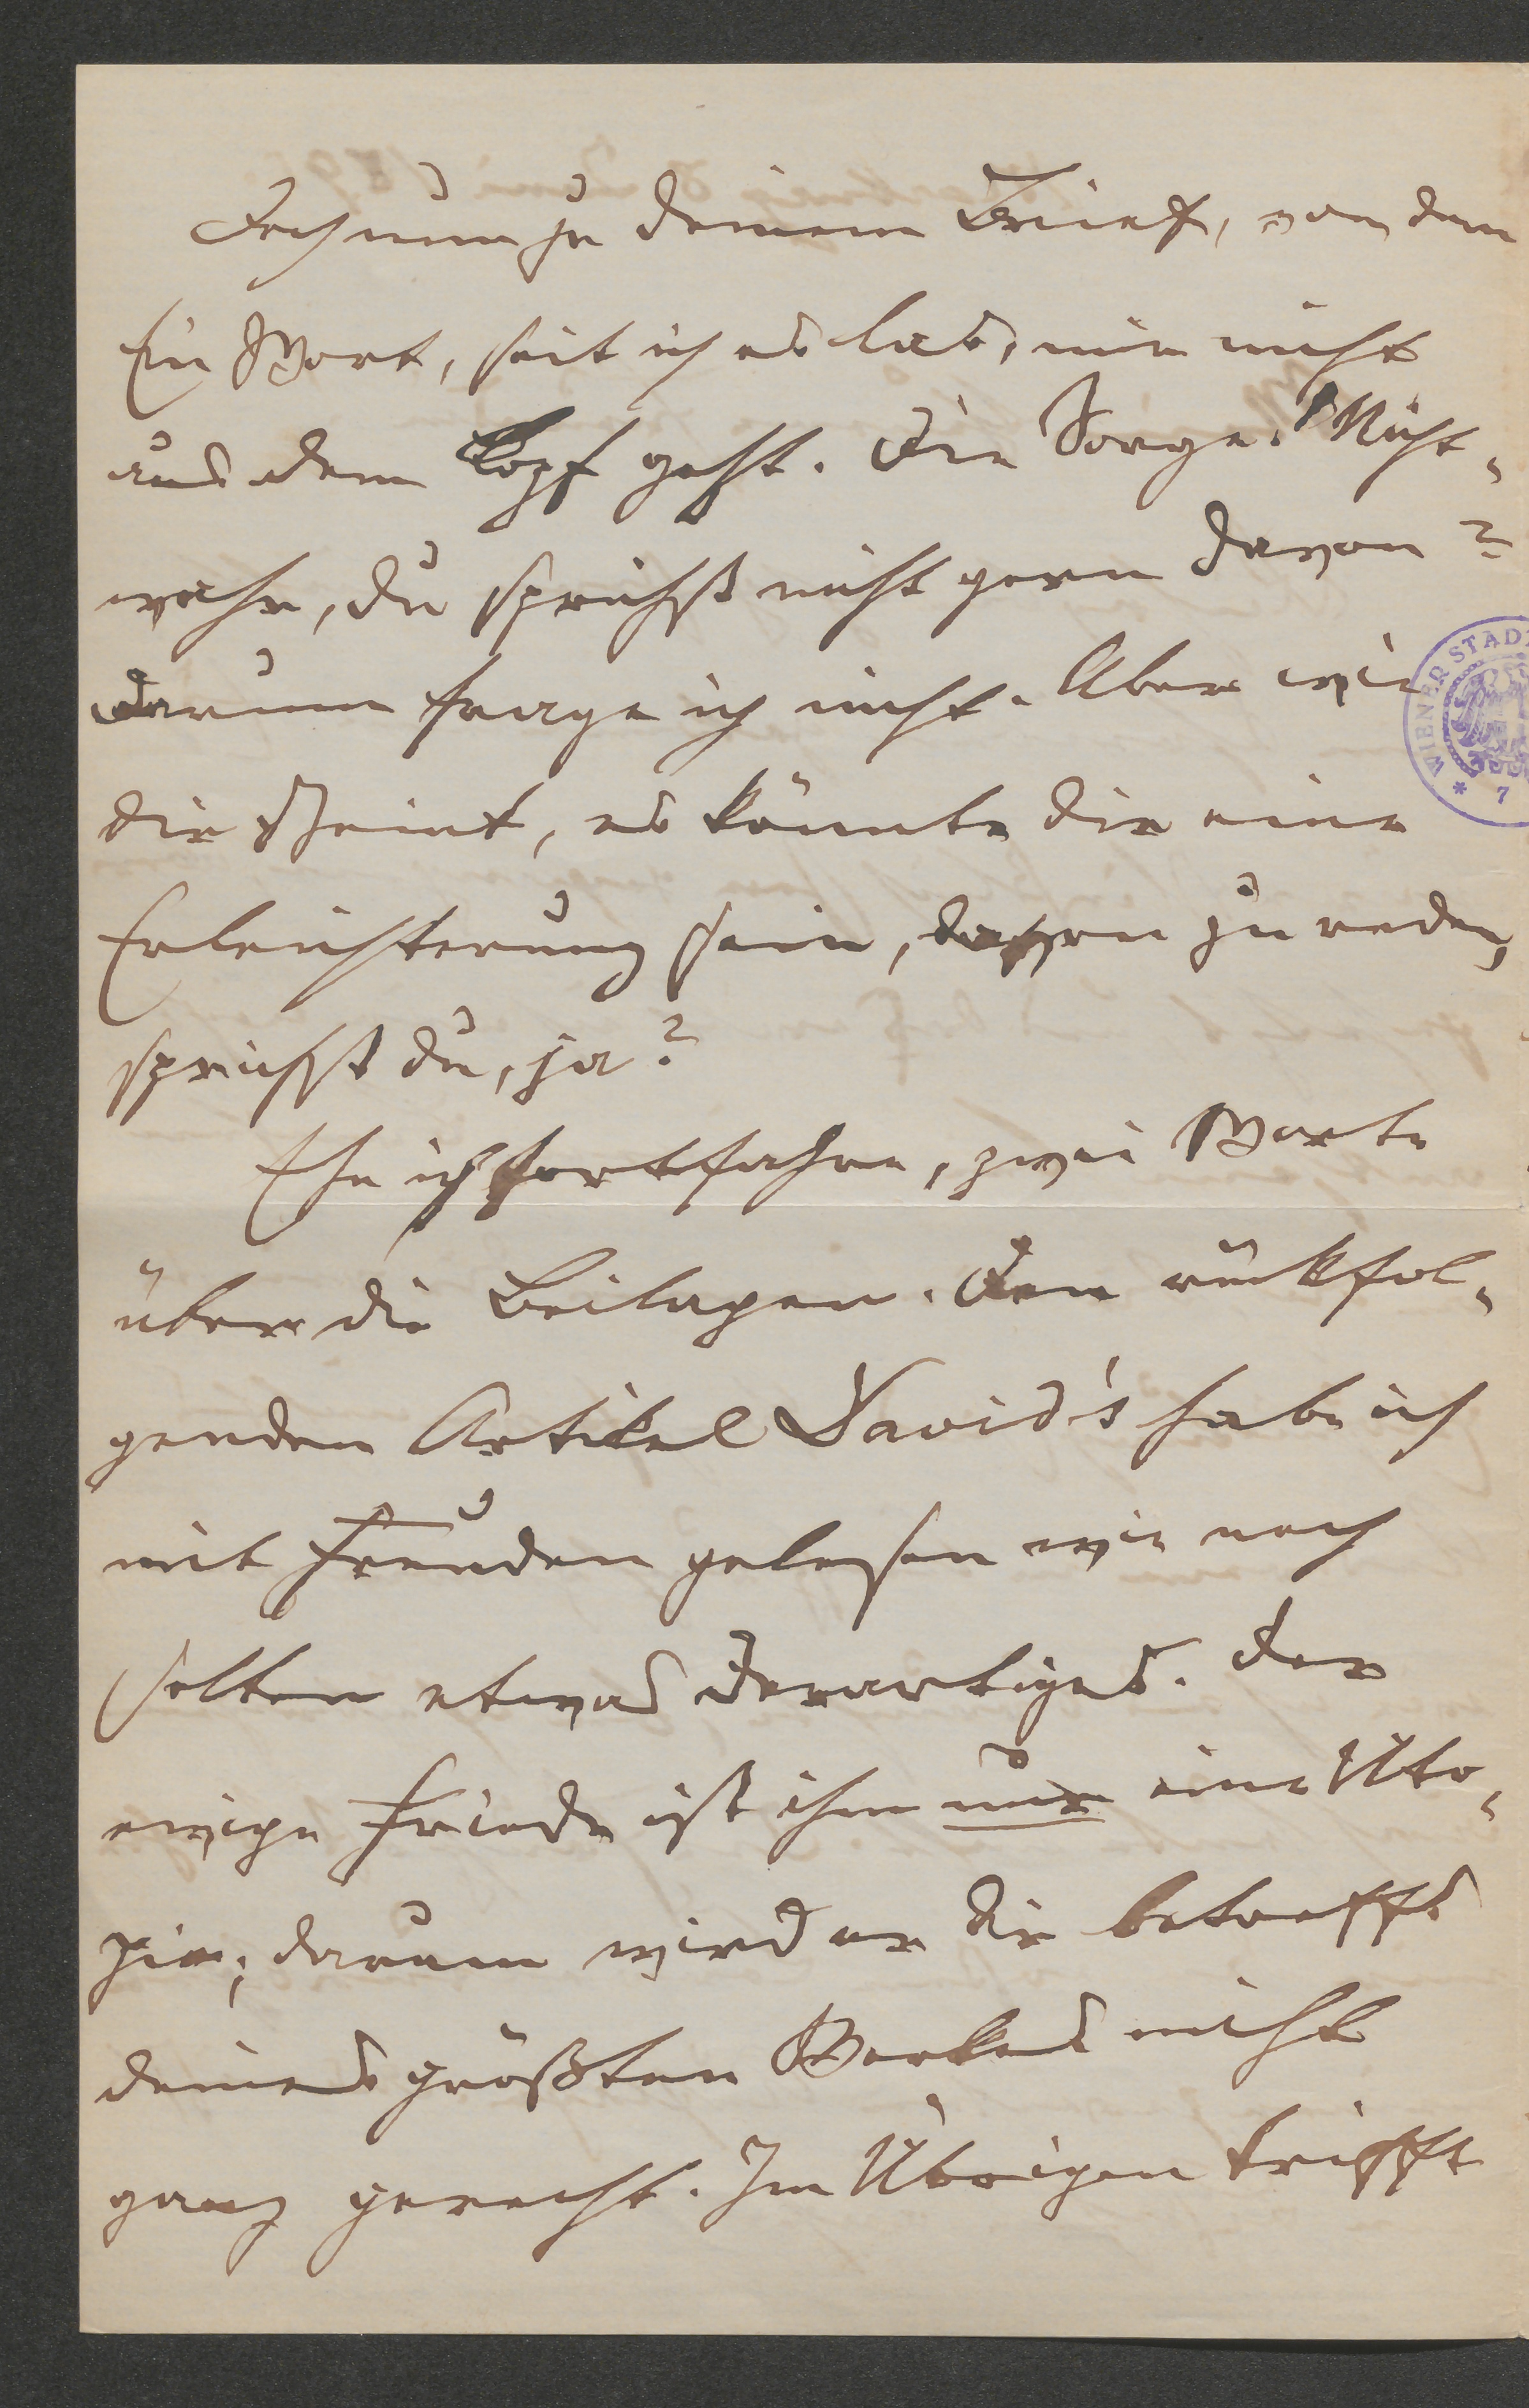 Doch nun zu deinem Brief, von dem
Ein Wort, seit ich es las, mir nicht
aus dem Kopf geht. Die Sorge. Nicht-
wahr, du sprichst nicht gern davon?
Darum frage ich nicht. Aber wie
dir scheint, es könnte dir eine
Erleichterung sein, davon zu reden,
sprichst du, ja?
Ehe ich fortfahre, zwei Worte
über die Beilagen. Den rückfol-
genden Artikel David's habe ich
mit Freuden gelesen wie noch
selten etwas Derartiges. Der
ewige Friede ist ihm nur eine Uto-
pie; darum wird er dir betreffs
deines größten Werkes nicht
ganz gerecht. Im Übrigen trifft
WIENER STAD
* 7